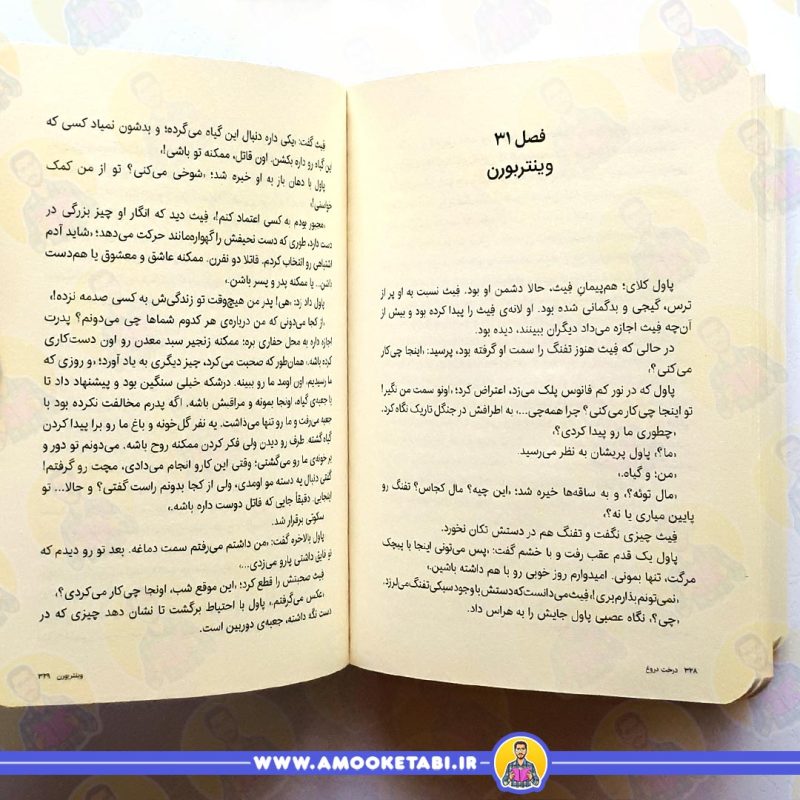 فصل ۳۱
وینتربورن
پاول کلای؛ هم‌پیمانِ فِیث، حالا دشمن او بود. فِیث نسبت به او پر از
ترس، گیجی و بدگمانی شده بود. او لانه‌ی فِیث را پیدا کرده بود و بیش از
آن‌چه فِیث اجازه می‌داد دیگران ببینند، دیده بود.
در حالی که فِیث هنوز تفنگ را سمت او گرفته بود، پرسید: «اینجا چی‌کار
می‌کنی؟»
پاول که در نور کم فانوس پلک می‌زد، اعتراض کرد؛ «اونو سمت من نگیر!
تو اینجا چی‌کار می‌کنی؟ چرا همه‌چی...» به اطرافش در جنگل تاریک نگاه کرد.
«چطوری ما رو پیدا کردی؟»
«ما؟» پاول پریشان به نظر می‌رسید.
«من؛ و گیاه.»
«مال توئه؟» و به ساقه‌ها خیره شد؛ «این چیه؟ مال کجاس؟ تفنگ رو
پایین میاری یا نه؟»
فِیث چیزی نگفت و تفنگ هم در دستش تکان نخورد.
پاول یک قدم عقب رفت و با خشم گفت: «پس می‌تونی اینجا با پیچک
مرگت، تنها بمونی. امیدوارم روز خوبی رو با هم داشته باشین.»
«نمی‌تونم بذارم بری!» فِیث می‌دانست که دستش با وجود سبکی تفنگ می‌لرزد.
«چی؟» نگاه عصبی پاول جایش را به هراس داد.
۳۲۸ درخت دروغ
فِیث گفت: «یکی داره دنبال این گیاه می‌گرده؛ و بدشون نمیاد کسی که
این گیاه رو داره بکشن. اون قاتل، ممکنه تو باشی!»
پاول با دهان باز به او خیره شد؛ «شوخی می‌کنی؟ تو از من کمک
خواستی!»
«مجبور بودم به کسی اعتماد کنم!» فِیث دید که انگار او چیز بزرگی در
دست دارد، طوری که دست نحیفش را گهواره‌مانند حرکت می‌دهد؛ «شاید آدم
اشتباهی رو انتخاب کردم. قاتلا دو نفرن. ممکنه عاشق و معشوق یا هم‌دست
باشن... یا ممکنه پدر و پسر باشن.»
پاول داد زد: «هی! پدر من هیچ‌وقت تو زندگی‌ش به کسی صدمه نزده!»
«از کجا می‌دونی که من درباره‌ی هر کدوم شماها چی می‌دونم؟ پدرت
اجازه داره به محل حفاری بره؛ ممکنه زنجیر سبد معدن رو اون دست‌کاری
کرده باشه.» همان‌طور که صحبت می‌کرد، چیز دیگری به یاد آورد؛ «و روزی که
ما رسیدیم، اون اومد ما رو ببینه. درشکه خیلی سنگین بود و پیشنهاد داد تا
با جعبه‌ی گیاه، اونجا بمونه و مراقبش باشه. اگه پدرم مخالفت نکرده بود با
جعبه می‌رفت و ما رو تنها می‌ذاشت. یه نفر گل‌خونه و باغ ما رو برا پیدا کردن
گیاه گشته. طرف رو دیدن ولی فکر کردن ممکنه روح باشه. می‌دونم تو دور و
بر خونه‌ی ما رو می‌گشتی؛ وقتی این کارو انجام می‌دادی، مچت رو گرفتم!
گفتی دنبال یه دسته مو اومدی، ولی از کجا بدونم راست گفتی؟ و حالا... تو
اینجایی. دقیقاً جایی که قاتل دوست داره باشه.»
سکوتی برقرار شد.
پاول بالاخره گفت: «من داشتم می‌رفتم سمت دماغه. بعد تو رو دیدم که
تو قایق داشتی پارو می‌زدی...»
فِیث صحبتش را قطع کرد؛ «این موقع شب، اونجا چی‌کار می‌کردی؟»
«عکس می‌گرفتم.» پاول با احتیاط برگشت تا نشان دهد چیزی که در
دست نگه داشته، جعبه‌ی دوربین است.
وینتربورن ۳۲۹
WWW.AMOOKETABI.IR